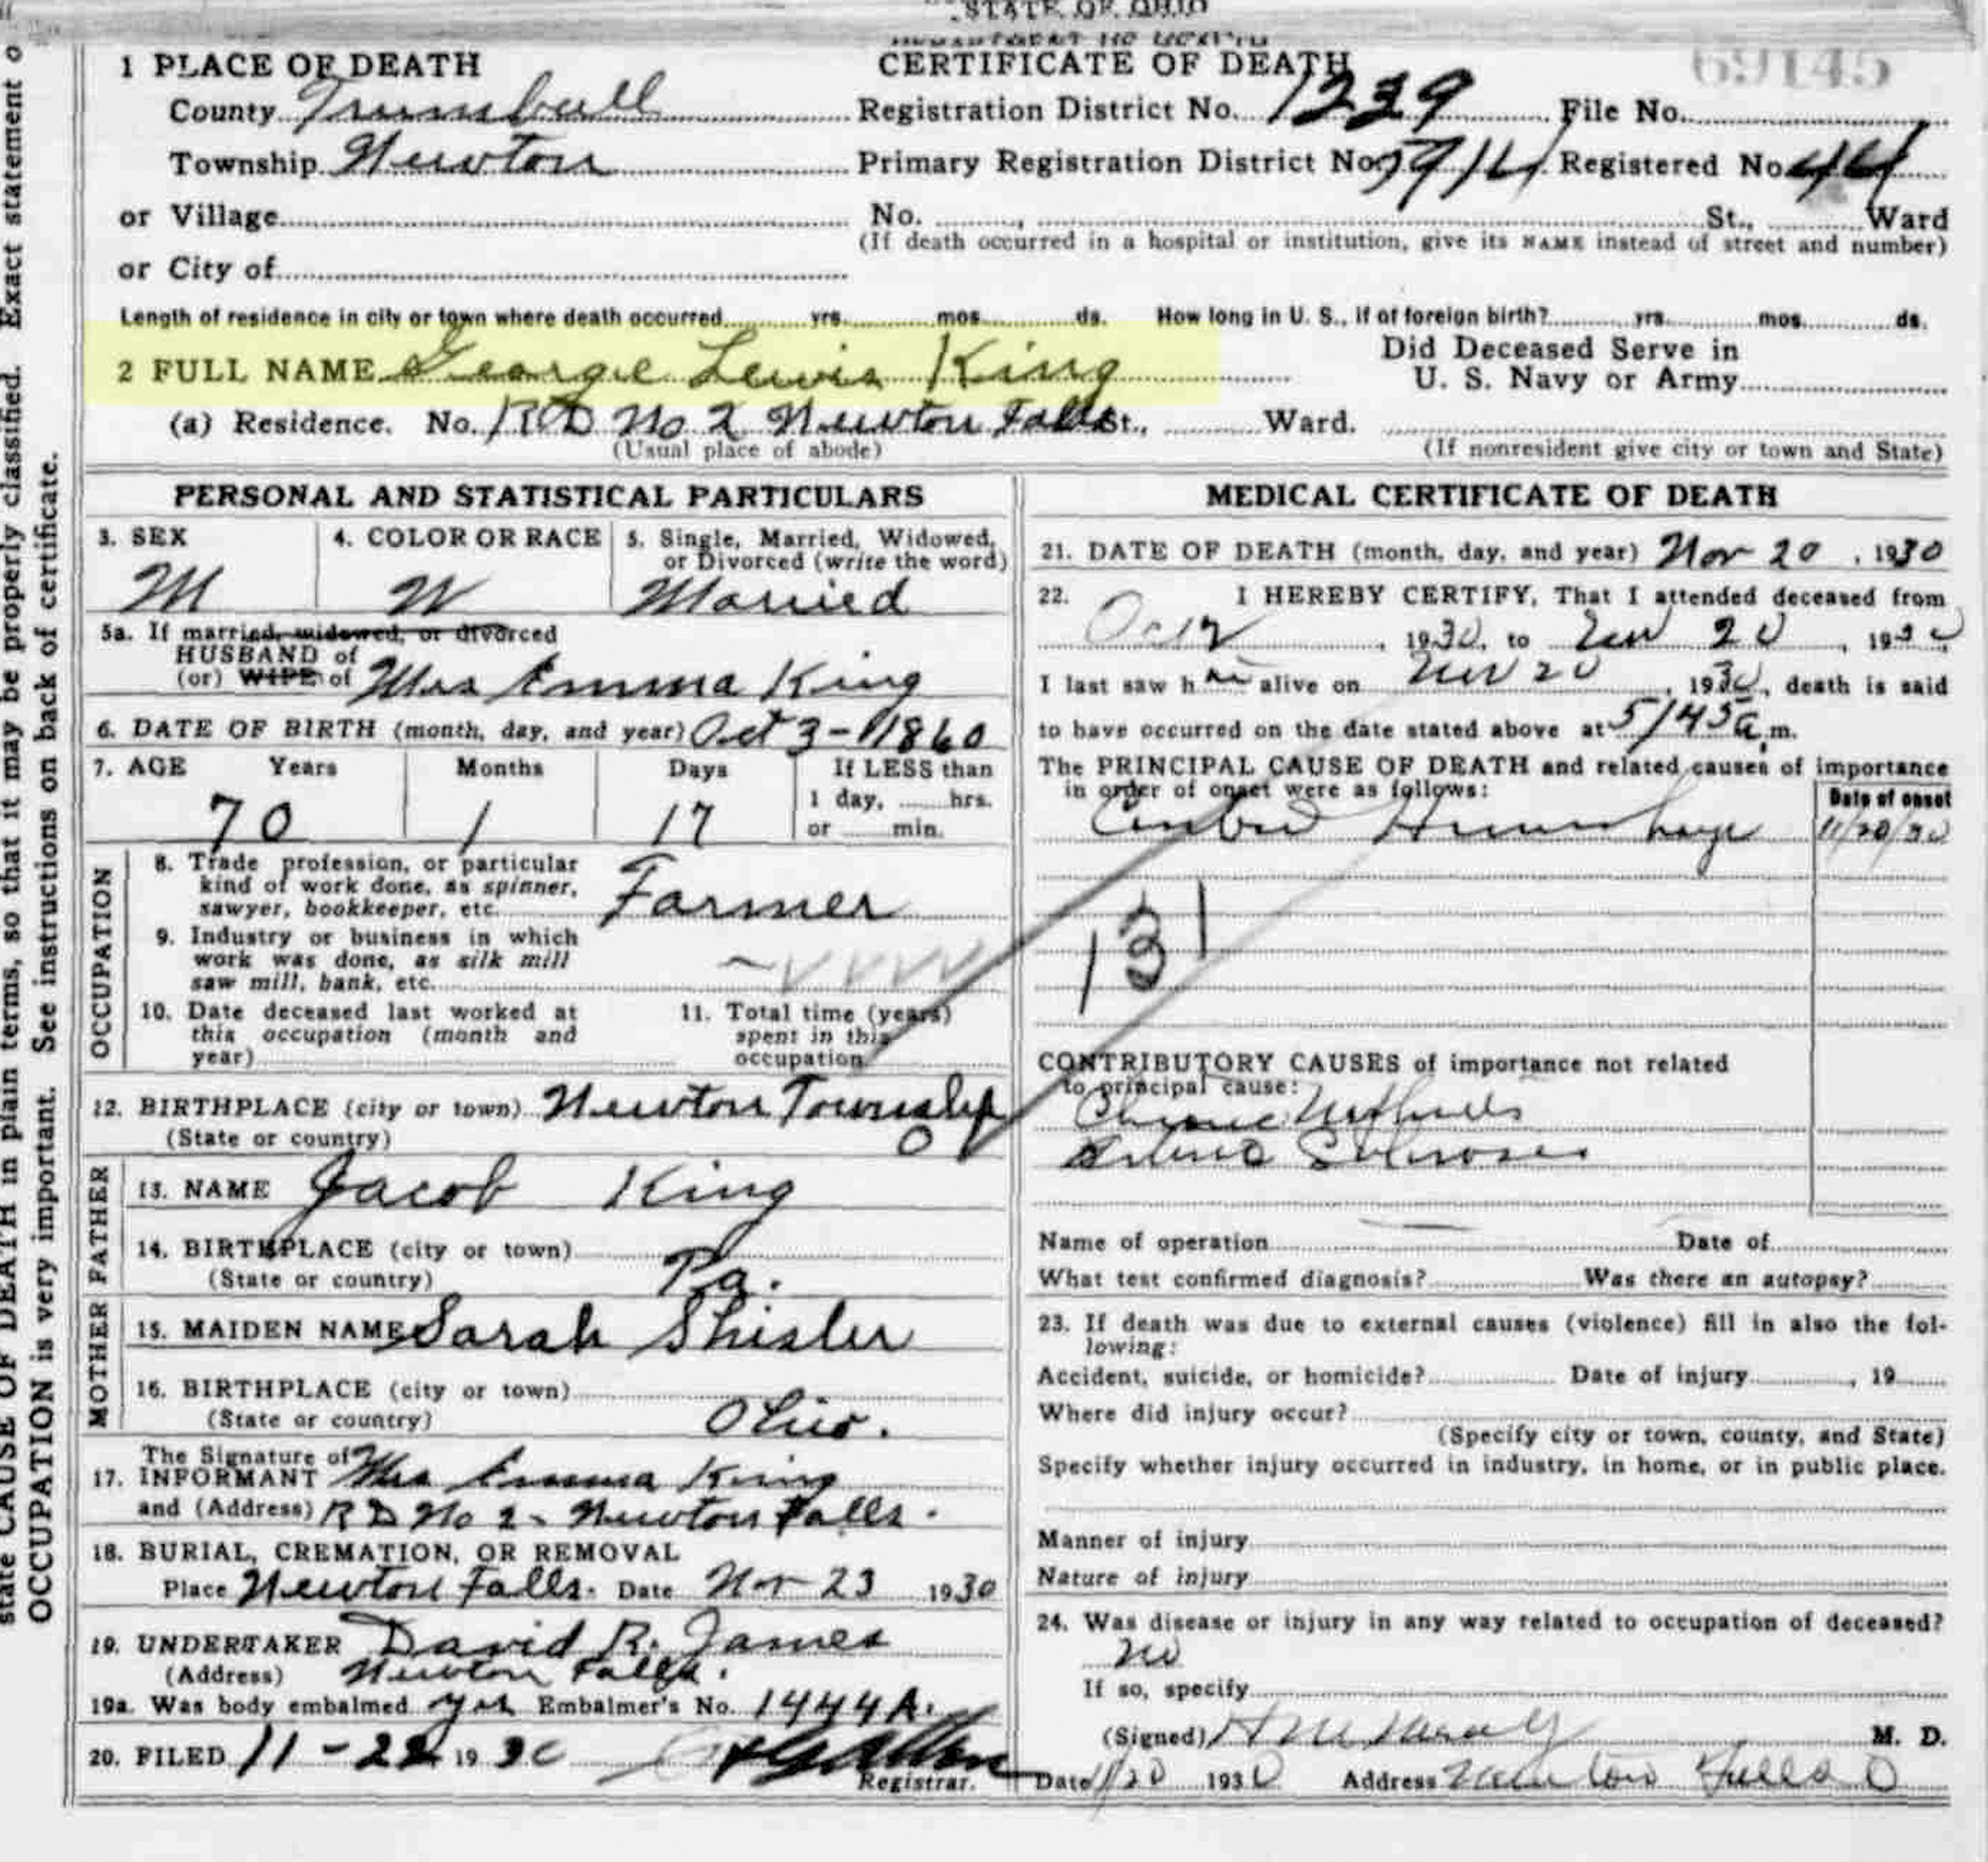 STATE OF OHIO
CERTIFICATE OF DEATH
69145
1 PLACE OF DEATH
County Trumbull Registration District No. 1239 File No.
Township Newton Primary Registration District No. 5914 Registered No. 44
or Village No. , St., Ward
(If death occurred in a hospital or institution, give its NAME instead of street and number)
or City of
Length of residence in city or town where death occurred yrs. mos. ds. How long in U. S., if of foreign birth? yrs. mos. ds.
2 FULL NAME George Lewis King
Did Deceased Serve in
U. S. Navy or Army
(a) Residence. No. RD No 2 Newton Falls St., Ward.
(Usual place of abode) (If nonresident give city or town and State)
PERSONAL AND STATISTICAL PARTICULARS
3. SEX 4. COLOR OR RACE 5. Single, Married, Widowed,
or Divorced (write the word)
M W Married
5a. If married, widowed, or divorced
HUSBAND of
(or) WIFE of Mrs Emma King
6. DATE OF BIRTH (month, day, and year) Oct 3 - 1860
7. AGE Years Months Days If LESS than
1 day, hrs.
or min.
70 1 17
OCCUPATION
8. Trade profession, or particular
kind of work done, as spinner,
sawyer, bookkeeper, etc. Farmer
9. Industry or business in which
work was done, as silk mill
saw mill, bank, etc.
10. Date deceased last worked at
this occupation (month and
year)
11. Total time (years)
spent in this
occupation
12. BIRTHPLACE (city or town) Newton Township
(State or country) O
FATHER
13. NAME Jacob King
14. BIRTHPLACE (city or town)
(State or country) Pa.
MOTHER
15. MAIDEN NAME Sarah Shisler
16. BIRTHPLACE (city or town)
(State or country) Ohio.
The Signature of
17. INFORMANT Mrs Emma King
and (Address) RD No 2 - Newton Falls.
18. BURIAL, CREMATION, OR REMOVAL
Place Newton Falls. Date Nov 23 1930
19. UNDERTAKER David R. James
(Address) Newton Falls.
19a. Was body embalmed yes Embalmer's No. 1444A.
20. FILED 11-22 1930
Registrar.
MEDICAL CERTIFICATE OF DEATH
21. DATE OF DEATH (month, day, and year) Nov 20 , 1930
22. I HEREBY CERTIFY, That I attended deceased from
, 1930, to Nov 20 , 1930
I last saw him alive on Nov 20 , 1930, death is said
to have occurred on the date stated above at 5/45 a.m.
The PRINCIPAL CAUSE OF DEATH and related causes of importance
in order of onset were as follows:
Date of onset
Cerebral Hemorrhage 11/20/30
131
CONTRIBUTORY CAUSES of importance not related
to principal cause:
Chronic Nephritis
Arterio Sclerosis
Name of operation Date of
What test confirmed diagnosis? Was there an autopsy?
23. If death was due to external causes (violence) fill in also the fol-
lowing:
Accident, suicide, or homicide? Date of injury , 19
Where did injury occur?
(Specify city or town, county, and State)
Specify whether injury occurred in industry, in home, or in public place.
Manner of injury
Nature of injury
24. Was disease or injury in any way related to occupation of deceased?
No
If so, specify
(Signed) M. D.
Date 11/20 1930 Address Newton Falls O
state CAUSE OF DEATH in plain terms, so that it may be properly classified. Exact statement o
OCCUPATION is very important. See instructions on back of certificate.